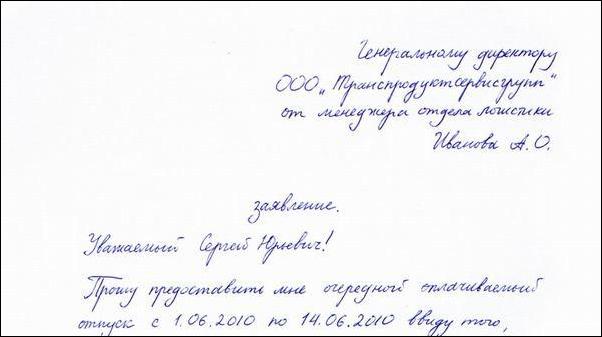 Генеральному директору
ООО „Транспродуктсервисгрупп“
от менеджера отдела логистики
Иванова А.О.
заявление.
Уважаемый Сергей Юрьевич!
Прошу предоставить мне очередной оплачиваемый
отпуск с 1.06.2010 по 14.06.2010 ввиду того,